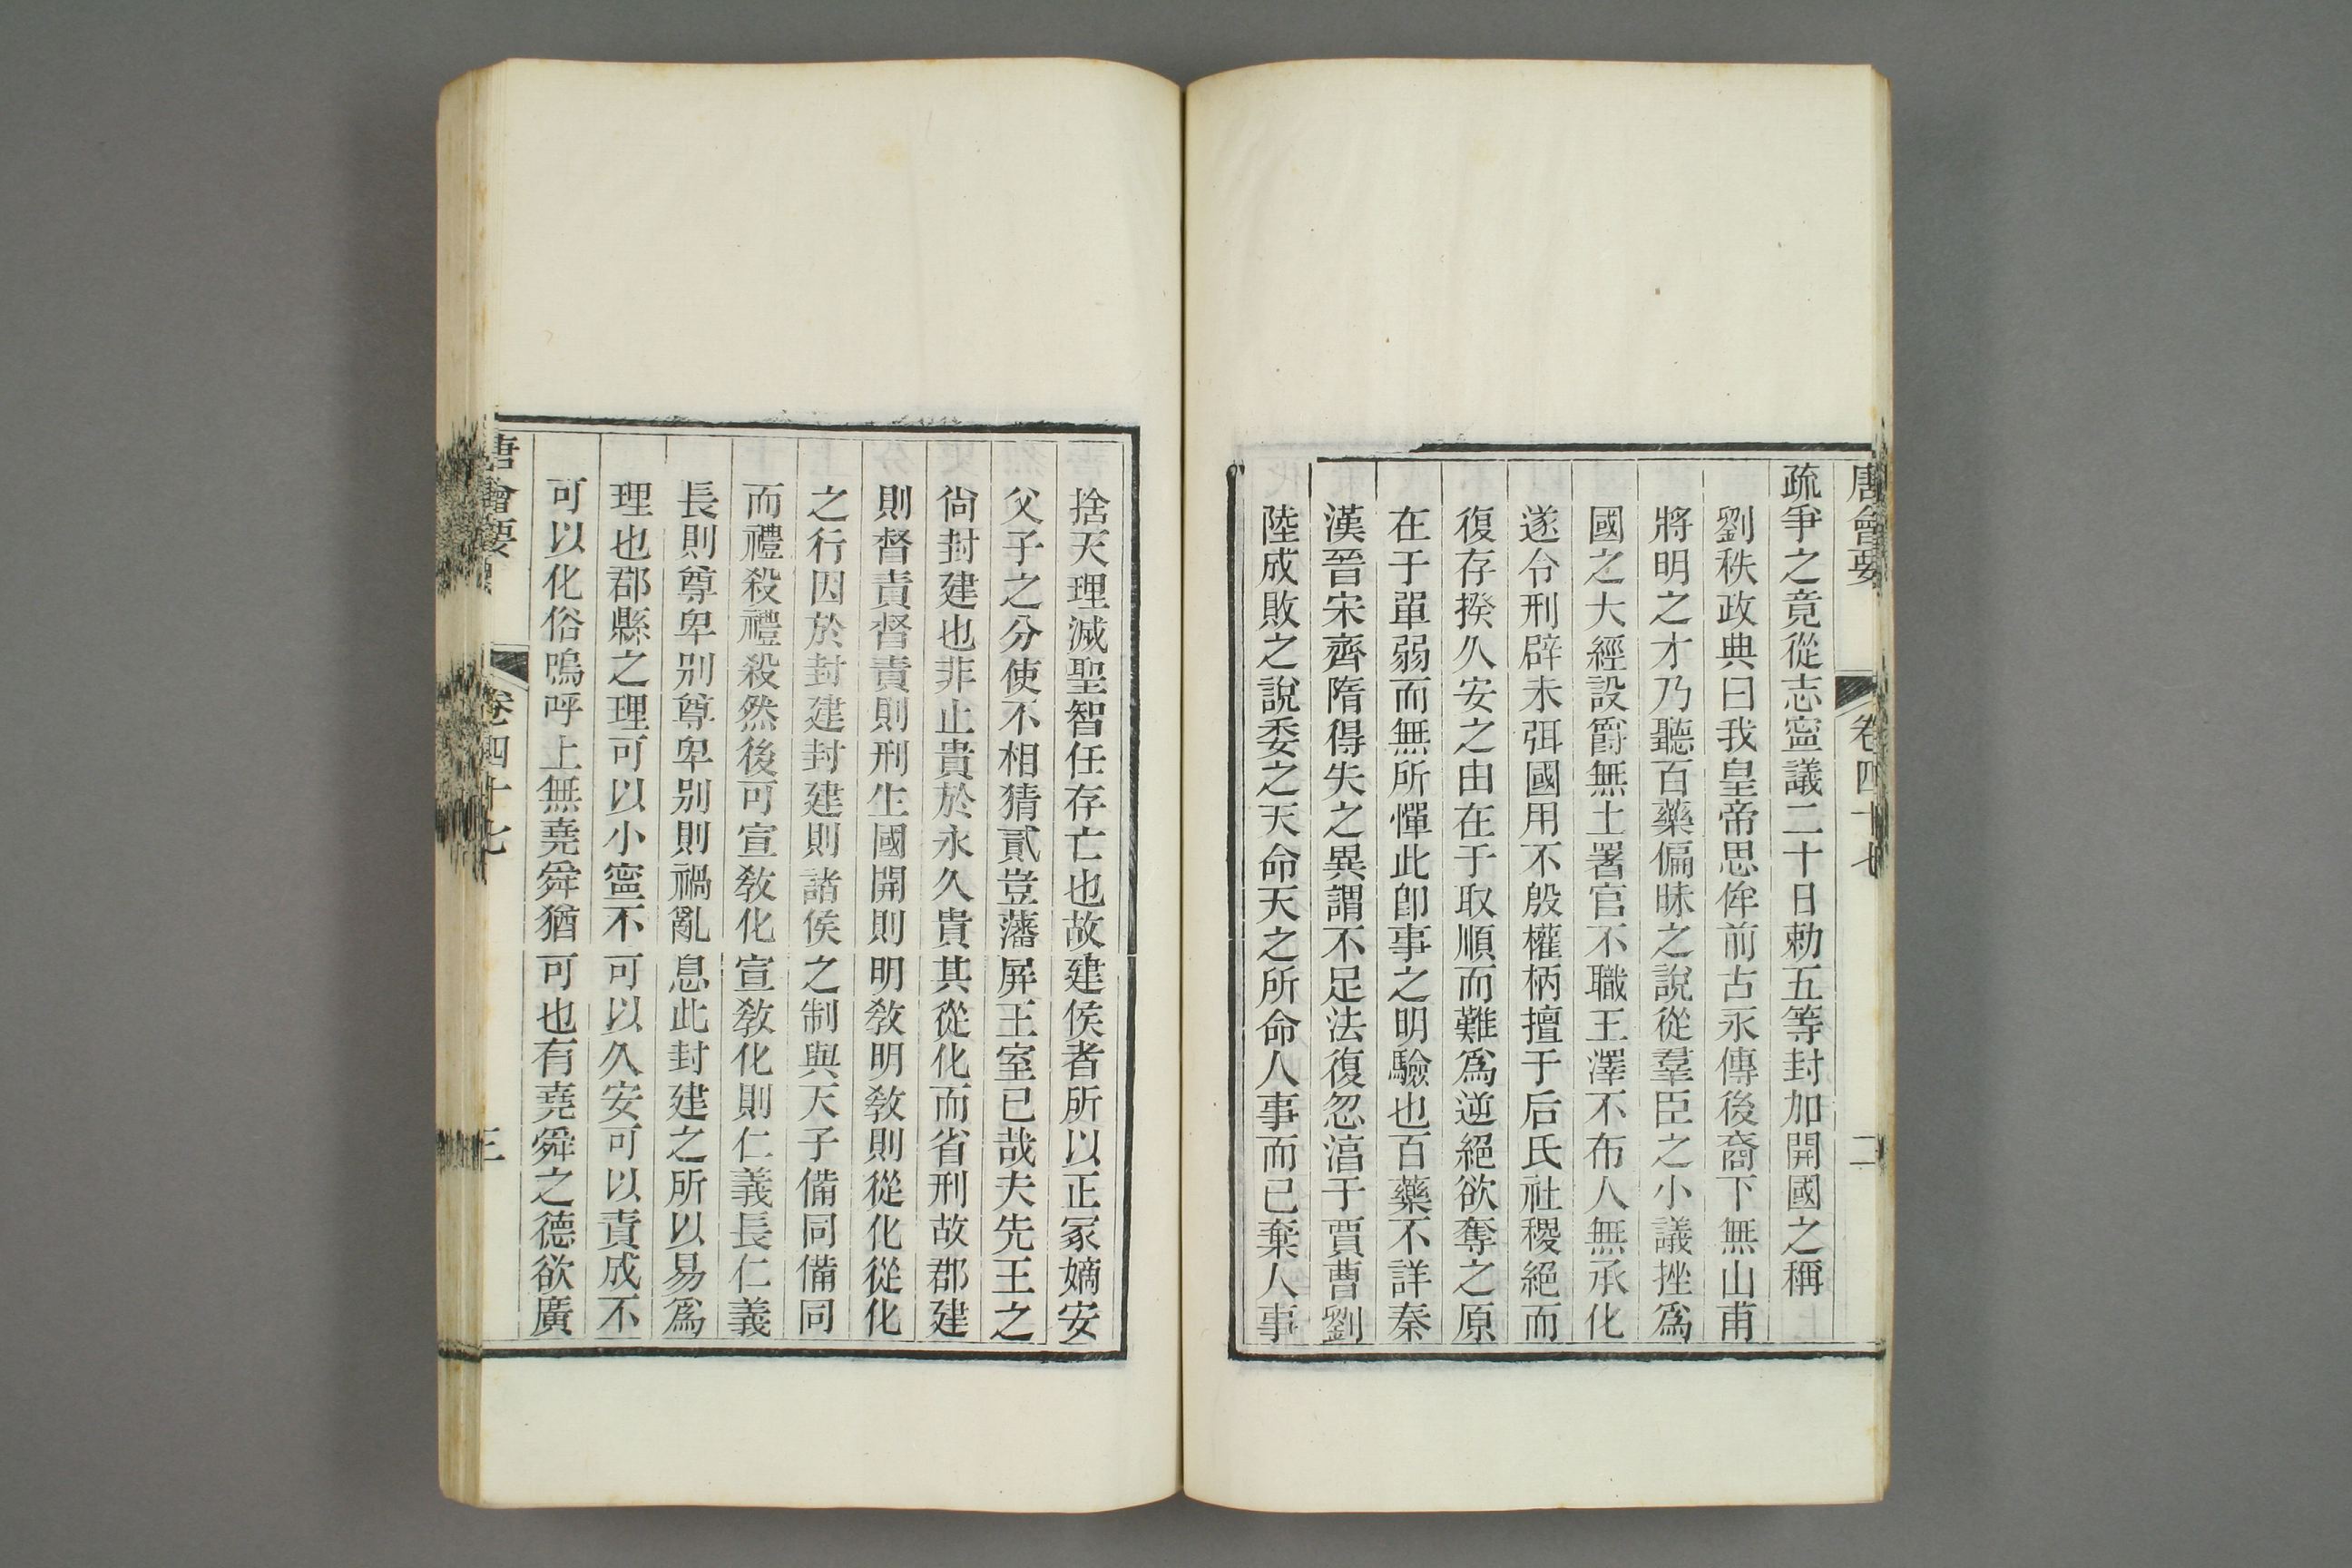 唐會要 卷四十七 二
疏爭之竟從志寧議二十日勅五等封加開國之稱
劉秩政典曰我皇帝思侔前古永傳後裔下無山甫
將明之才乃聽百藥偏昧之說從羣臣之小議挫爲
國之大經設爵無土署官不職王澤不布人無承化
遂令刑辟未弭國用不殷權柄擅于后氏社稷絕而
復存揆久安之由在于取順而難爲逆絕欲奪之原
在于單弱而無所憚此卽事之明驗也百藥不詳秦
漢晉宋齊隋得失之異謂不足法復忽淊于賈曹劉
陸成敗之說委之天命天之所命人事而已棄人事
捨天理滅聖智任存亡也故建侯者所以正冡嫡安
父子之分使不相猜貳豈藩屏王室已哉夫先王之
尙封建也非止貴於永久貴其從化而省刑故郡建
則督責督責則刑生國開則明敎明敎則從化從化
之行因於封建封建則諸侯之制與天子備同備同
而禮殺禮殺然後可宣敎化宣敎化則仁義長仁義
長則尊卑别尊卑别則禍亂息此封建之所以易爲
理也郡縣之理可以小寧不可以久安可以責成不
可以化俗嗚呼上無堯舜猶可也有堯舜之德欲廣
唐會要 卷四十七 三